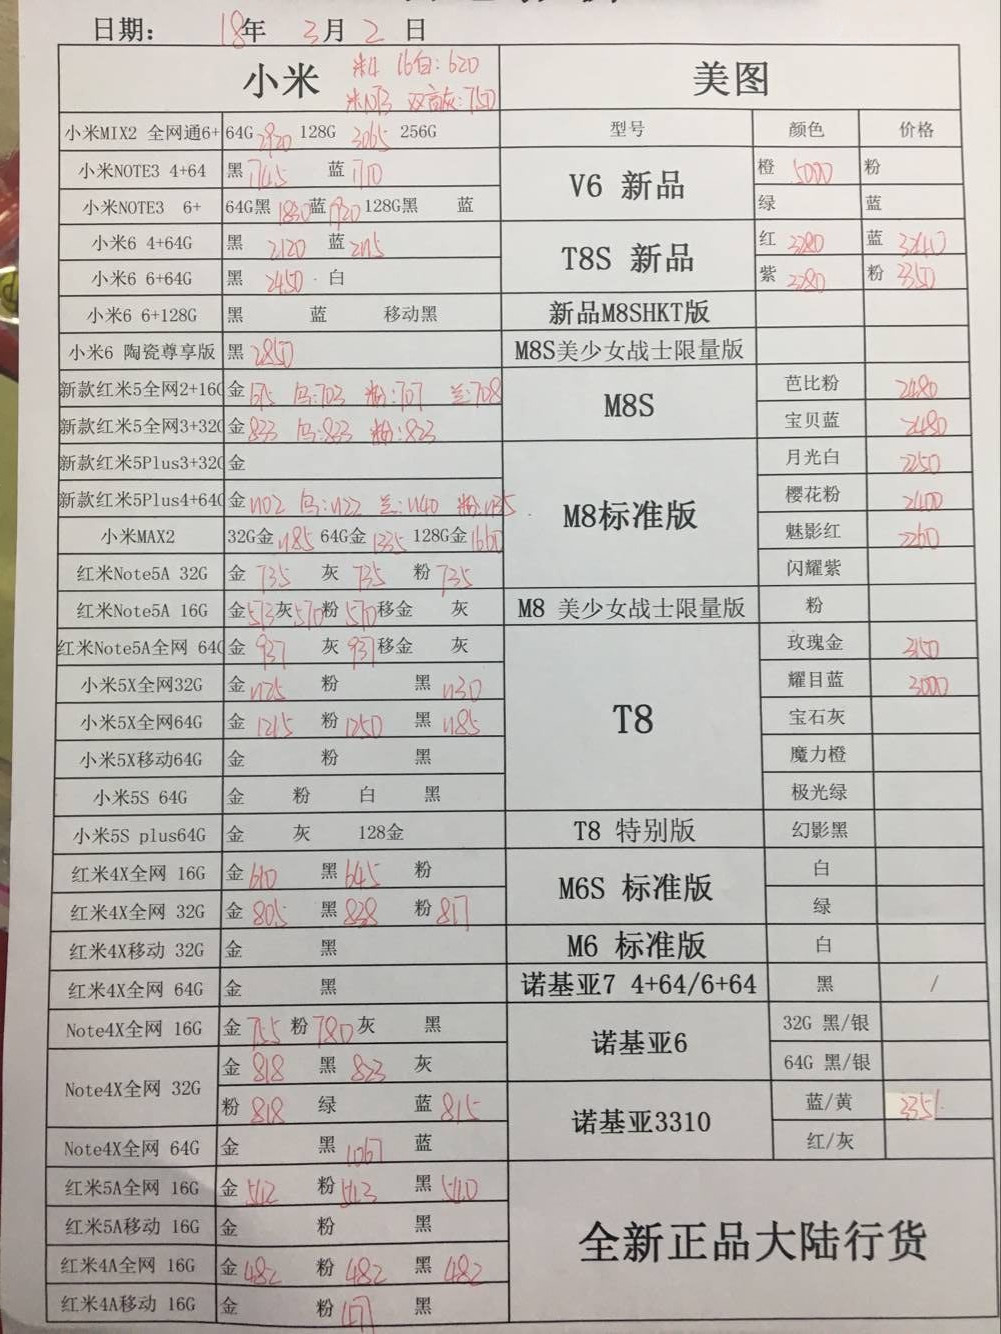 日期： 18年 3月 2 日
小米 米4 16白:620
米NT3 双高灰:750
美图
小米MIX2 全网通6+ 64G 2920 128G 3065 256G
型号 颜色 价格
小米NOTE3 4+64 黑 1745 蓝 1710
V6 新品 橙 5000 粉
小米NOTE3 6+ 64G黑 1830 蓝 1920 128G黑 蓝
绿 蓝
小米6 4+64G 黑 2120 蓝 2115
T8S 新品 红 3280 蓝 3240
小米6 6+64G 黑 2450 白
紫 3280 粉 3350
小米6 6+128G 黑 蓝 移动黑
新品M8SHKT版
小米6 陶瓷尊享版 黑 2850
M8S美少女战士限量版
新款红米5全网2+16G 金 粉:707 兰:708
M8S 芭比粉 2480
新款红米5全网3+32G 金 833 乌:833 粉:823
宝贝蓝 2480
新款红米5Plus3+32G 金
M8标准版 月光白 2250
新款红米5Plus4+64G 金 1102 乌:1122 兰:1140 粉:1135
樱花粉 2400
小米MAX2 32G金 1185 64G金 1335 128G金 1660
魅影红 2260
红米Note5A 32G 金 735 灰 735 粉 735
闪耀紫
红米Note5A 16G 金 573 灰 570 粉 570 移金 灰
M8 美少女战士限量版 粉
红米Note5A全网 64G 金 937 灰 937 移金 灰
T8 玫瑰金 3150
小米5X全网32G 金 1125 粉 黑 1130
耀目蓝 3000
小米5X全网64G 金 1215 粉 1250 黑 1185
宝石灰
小米5X移动64G 金 粉 黑
魔力橙
小米5S 64G 金 粉 白 黑
极光绿
小米5S plus64G 金 灰 128金
T8 特别版 幻影黑
红米4X全网 16G 金 610 黑 645 粉
M6S 标准版 白
红米4X全网 32G 金 805 黑 828 粉 817
绿
红米4X移动 32G 金 黑
M6 标准版 白
红米4X全网 64G 金 黑
诺基亚7 4+64/6+64 黑 /
Note4X全网 16G 金 755 粉 780 灰 黑
诺基亚6 32G 黑/银
Note4X全网 32G 金 818 黑 823 灰
64G 黑/银
粉 818 绿 蓝 815
诺基亚3310 蓝/黄 335
Note4X全网 64G 金 黑 1067 蓝
红/灰
红米5A全网 16G 金 542 粉 543 黑 540
红米5A移动 16G 金 粉 黑
全新正品大陆行货
红米4A全网 16G 金 482 粉 482 黑 482
红米4A移动 16G 金 粉 471 黑